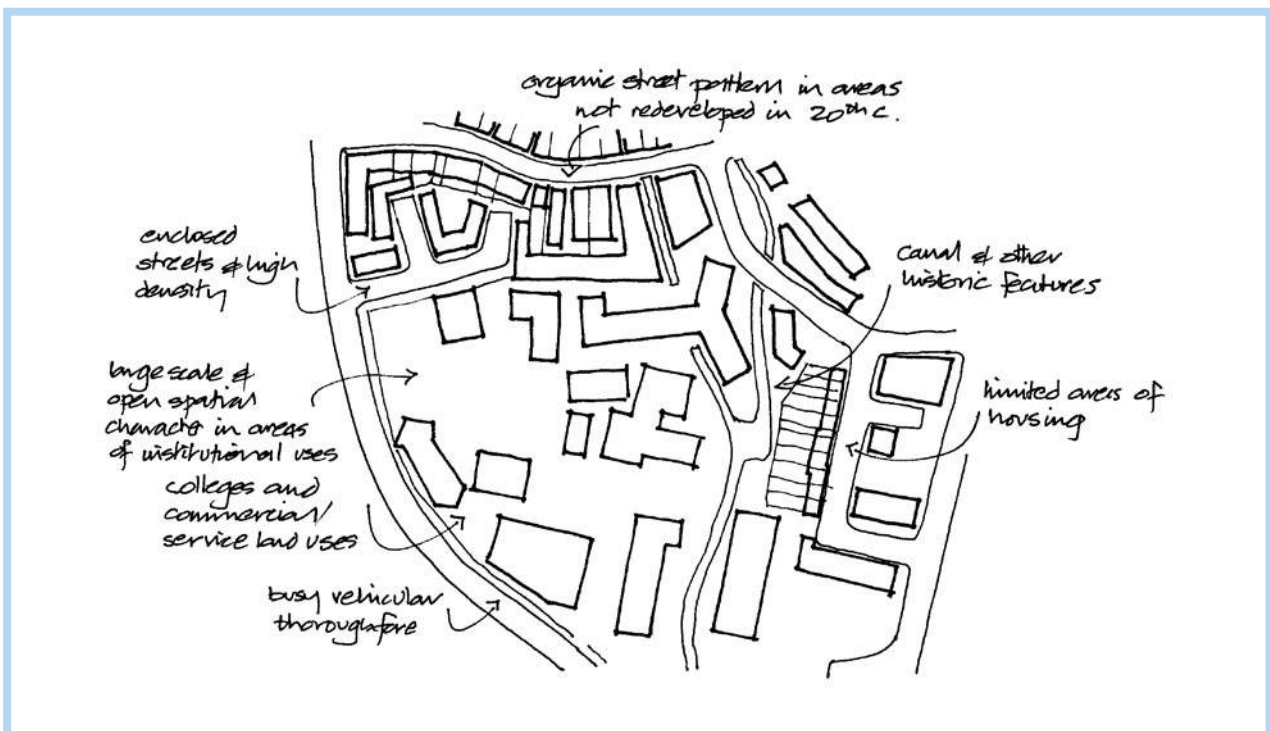 organic street pattern in areas
not redeveloped in 20th c.
enclosed
streets & high
density
canal & other
historic features
large scale &
open spatial
character in areas
of institutional uses
limited areas of
housing
colleges and
commercial/
service land uses
busy vehicular
thoroughfare